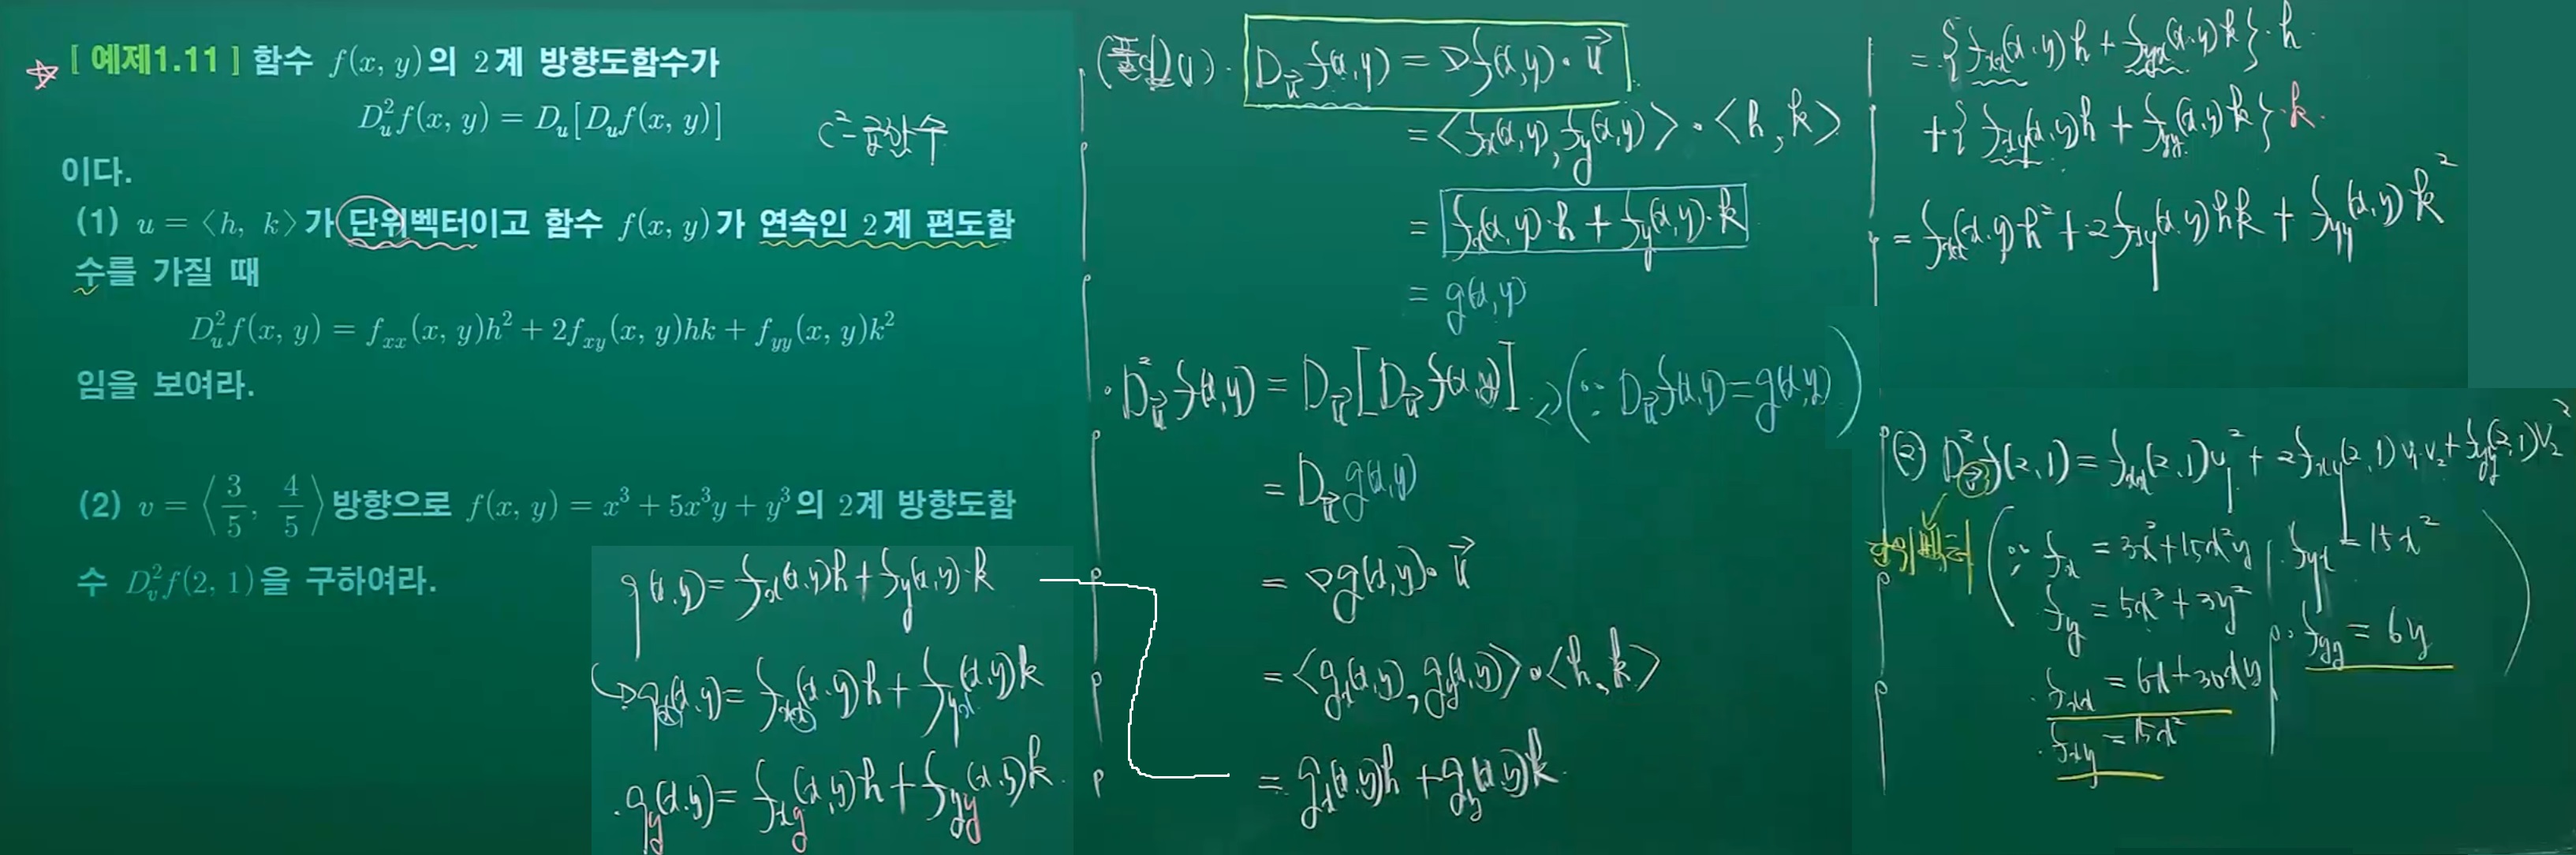 [ 예제1.11 ] 함수 f(x, y)의 2계 방향도함수가
D_u^2 f(x, y) = D_u[D_u f(x, y)]
C²-급함수
이다.
(1) u = ⟨h, k⟩가 단위벡터이고 함수 f(x, y)가 연속인 2계 편도함
수를 가질 때
D_u^2 f(x, y) = f_xx(x, y)h² + 2f_xy(x, y)hk + f_yy(x, y)k²
임을 보여라.
(2) v = ⟨3/5, 4/5⟩방향으로 f(x, y) = x³ + 5x³y + y³의 2계 방향도함
수 D_v^2 f(2, 1)을 구하여라.
g(x,y) = f_x(x,y)h + f_y(x,y)·k
g_x(x,y) = f_xx(x,y)h + f_yx(x,y)k
g_y(x,y) = f_xy(x,y)h + f_yy(x,y)k
(풀이) (1) · D_u⃗ f(x,y) = ∇f(x,y)·u⃗
= <f_x(x,y), f_y(x,y)> · <h, k>
= f_x(x,y)·h + f_y(x,y)·k
= g(x,y)
· D²_u⃗ f(x,y) = D_u⃗[D_u⃗ f(x,y)] (∵ D_u⃗ f(x,y) = g(x,y))
= D_u⃗ g(x,y)
= ∇g(x,y)·u⃗
= <g_x(x,y), g_y(x,y)> · <h, k>
= g_x(x,y)h + g_y(x,y)k
= {f_xx(x,y)h + f_yx(x,y)k}·h
+ {f_xy(x,y)h + f_yy(x,y)k}·k
= f_xx(x,y)h² + 2f_xy(x,y)hk + f_yy(x,y)k²
(2) D²_v⃗ f(2,1) = f_xx(2,1)v₁² + 2f_xy(2,1)v₁·v₂ + f_yy(2,1)v₂²
단위벡터
(∵ f_x = 3x² + 15x²y
f_y = 5x³ + 3y²
· f_xx = 6x + 30xy
· f_xy = 15x²
f_yx = 15x²
· f_yy = 6y )